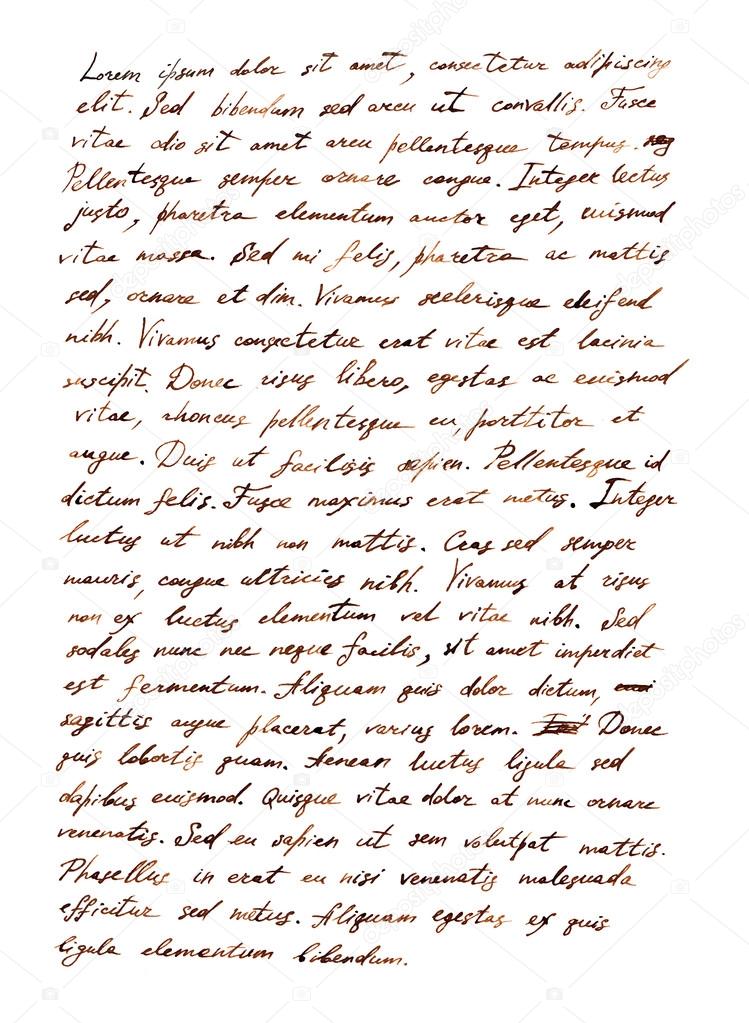 Lorem ipsum dolor sit amet, consectetur adipiscing
elit. Sed bibendum sed arcu ut convallis. Fusce
vitae odio sit amet arcu pellentesque tempus.
Pellentesque semper ornare congue. Integer lectus
justo, pharetra elementum auctor eget, euismod
vitae massa. Sed mi felis, pharetra ac mattis
sed, ornare et dim. Vivamus scelerisque eleifend
nibh. Vivamus consectetur erat vitae est lacinia
suscipit. Donec risus libero, egestas ac euismod
vitae, rhoncus pellentesque eu, porttitor et
augue. Duis ut facilisis sapien. Pellentesque id
dictum felis. Fusce maximus erat metus. Integer
luctus ut nibh non mattis. Cras sed semper
mauris, congue ultricies nibh. Vivamus at risus
non ex luctus elementum vel vitae nibh. Sed
sodales nunc nec neque facilis, sit amet imperdiet
est fermentum. Aliquam quis dolor dictum,
sagittis augue placerat, varius lorem. Donec
quis lobortis quam. Aenean luctus ligula sed
dapibus euismod. Quisque vitae dolor at nunc ornare
venenatis. Sed eu sapien ut sem volutpat mattis.
Phasellus in erat eu nisi venenatis malesuada
efficitur sed metus. Aliquam egestas ex quis
ligula elementum bibendum.